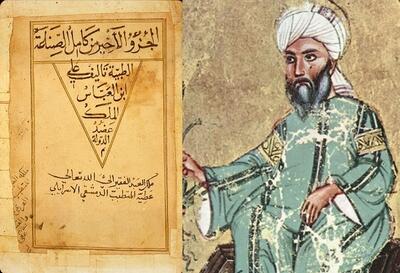 الجزؤ الآخير من كامل الصناعة
الطبية تاليف علي
ابن العباس
الملك
عضد
الدولة
العبد الفقير الى الله تعالى
عطية المتطبب الدمشقي الاسرايلي